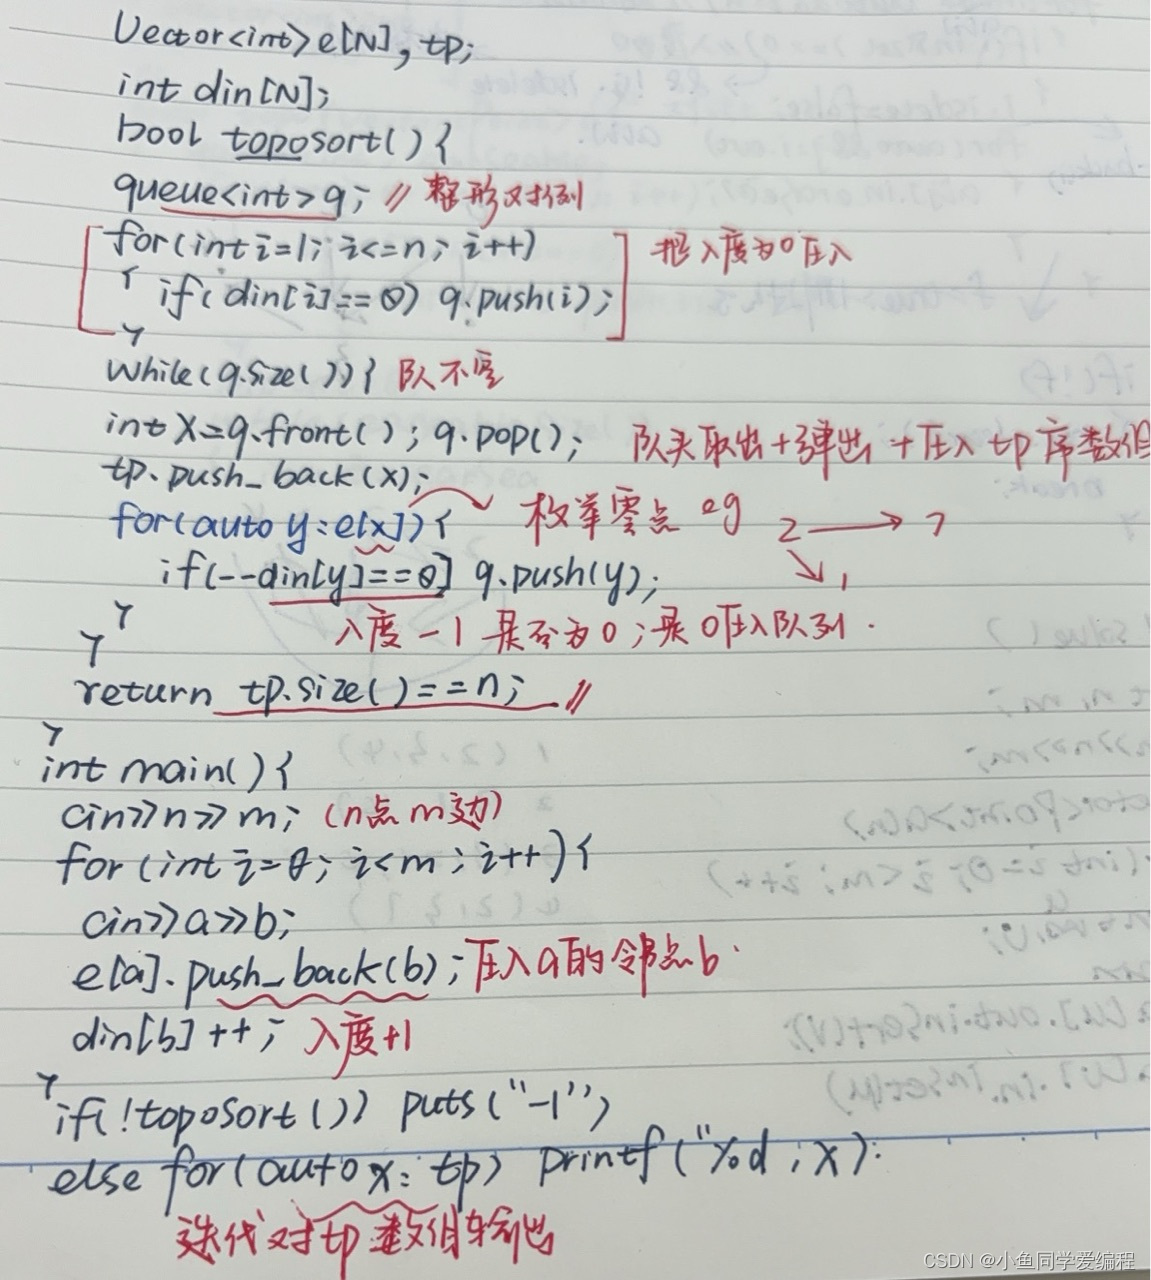 Vector<int>e[N],tp;
int din[N];
bool toposort(){
queue<int>q; // 整形对列
for(int i=1;i<=n;i++) 把入度为0压入
{ if(din[i]==0) q.push(i);
}
while(q.size()){ 队不空
int x=q.front();q.pop(); 队头取出+弹出+压入tp序数组
tp.push_back(x);
for(auto y:e[x]){ 枚举零点 eg 2 → 7
if(--din[y]==0] q.push(y); 1
} 入度-1 是否为0;是0压入队列.
}
return tp.size()==n; //
}
int main(){
cin>>n>>m; (n点m边)
for(int i=0;i<m;i++){
cin>>a>>b;
e[a].push_back(b);压入a的邻点b.
din[b]++; 入度+1
}
if(!toposort()) puts("-1")
else for(auto x:tp) printf("%d;x):
迭代对tp数组输出
CSDN @小鱼同学爱编程